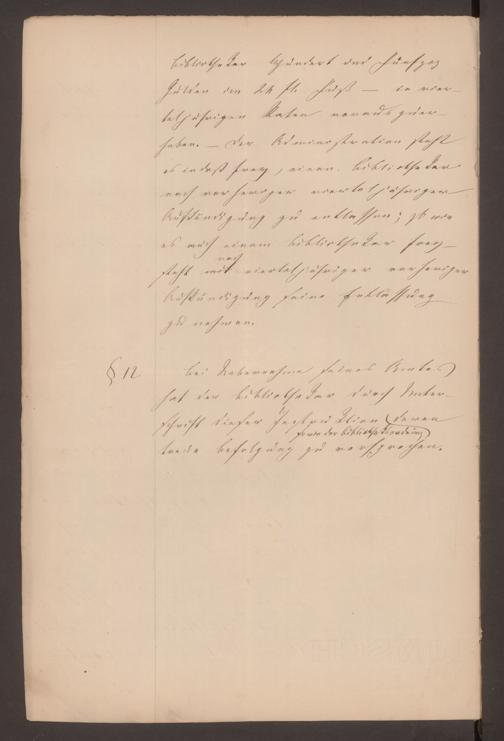 Bibliothekar Hundert und Fünfzig
Gulden im 24 fl. Fuß — in vier-
teljährigen Raten voraus zu er-
heben. — Der Administration steht
es indeß frey, einen Bibliothekar
nach vorheriger vierteljähriger
Aufkündigung zu entlassen; so wie
es auch einem Bibliothekar frey-
steht nach vierteljähriger vorheriger
Aufkündigung seine Entlassung
zu nehmen.
§ 12 Bei Uebernahme seines Amtes
hat der Bibliothekar durch Unter-
schrift dieser Instruktion (deren
sowie der Bibliothekordnung)
treue Befolgung zu versprechen.